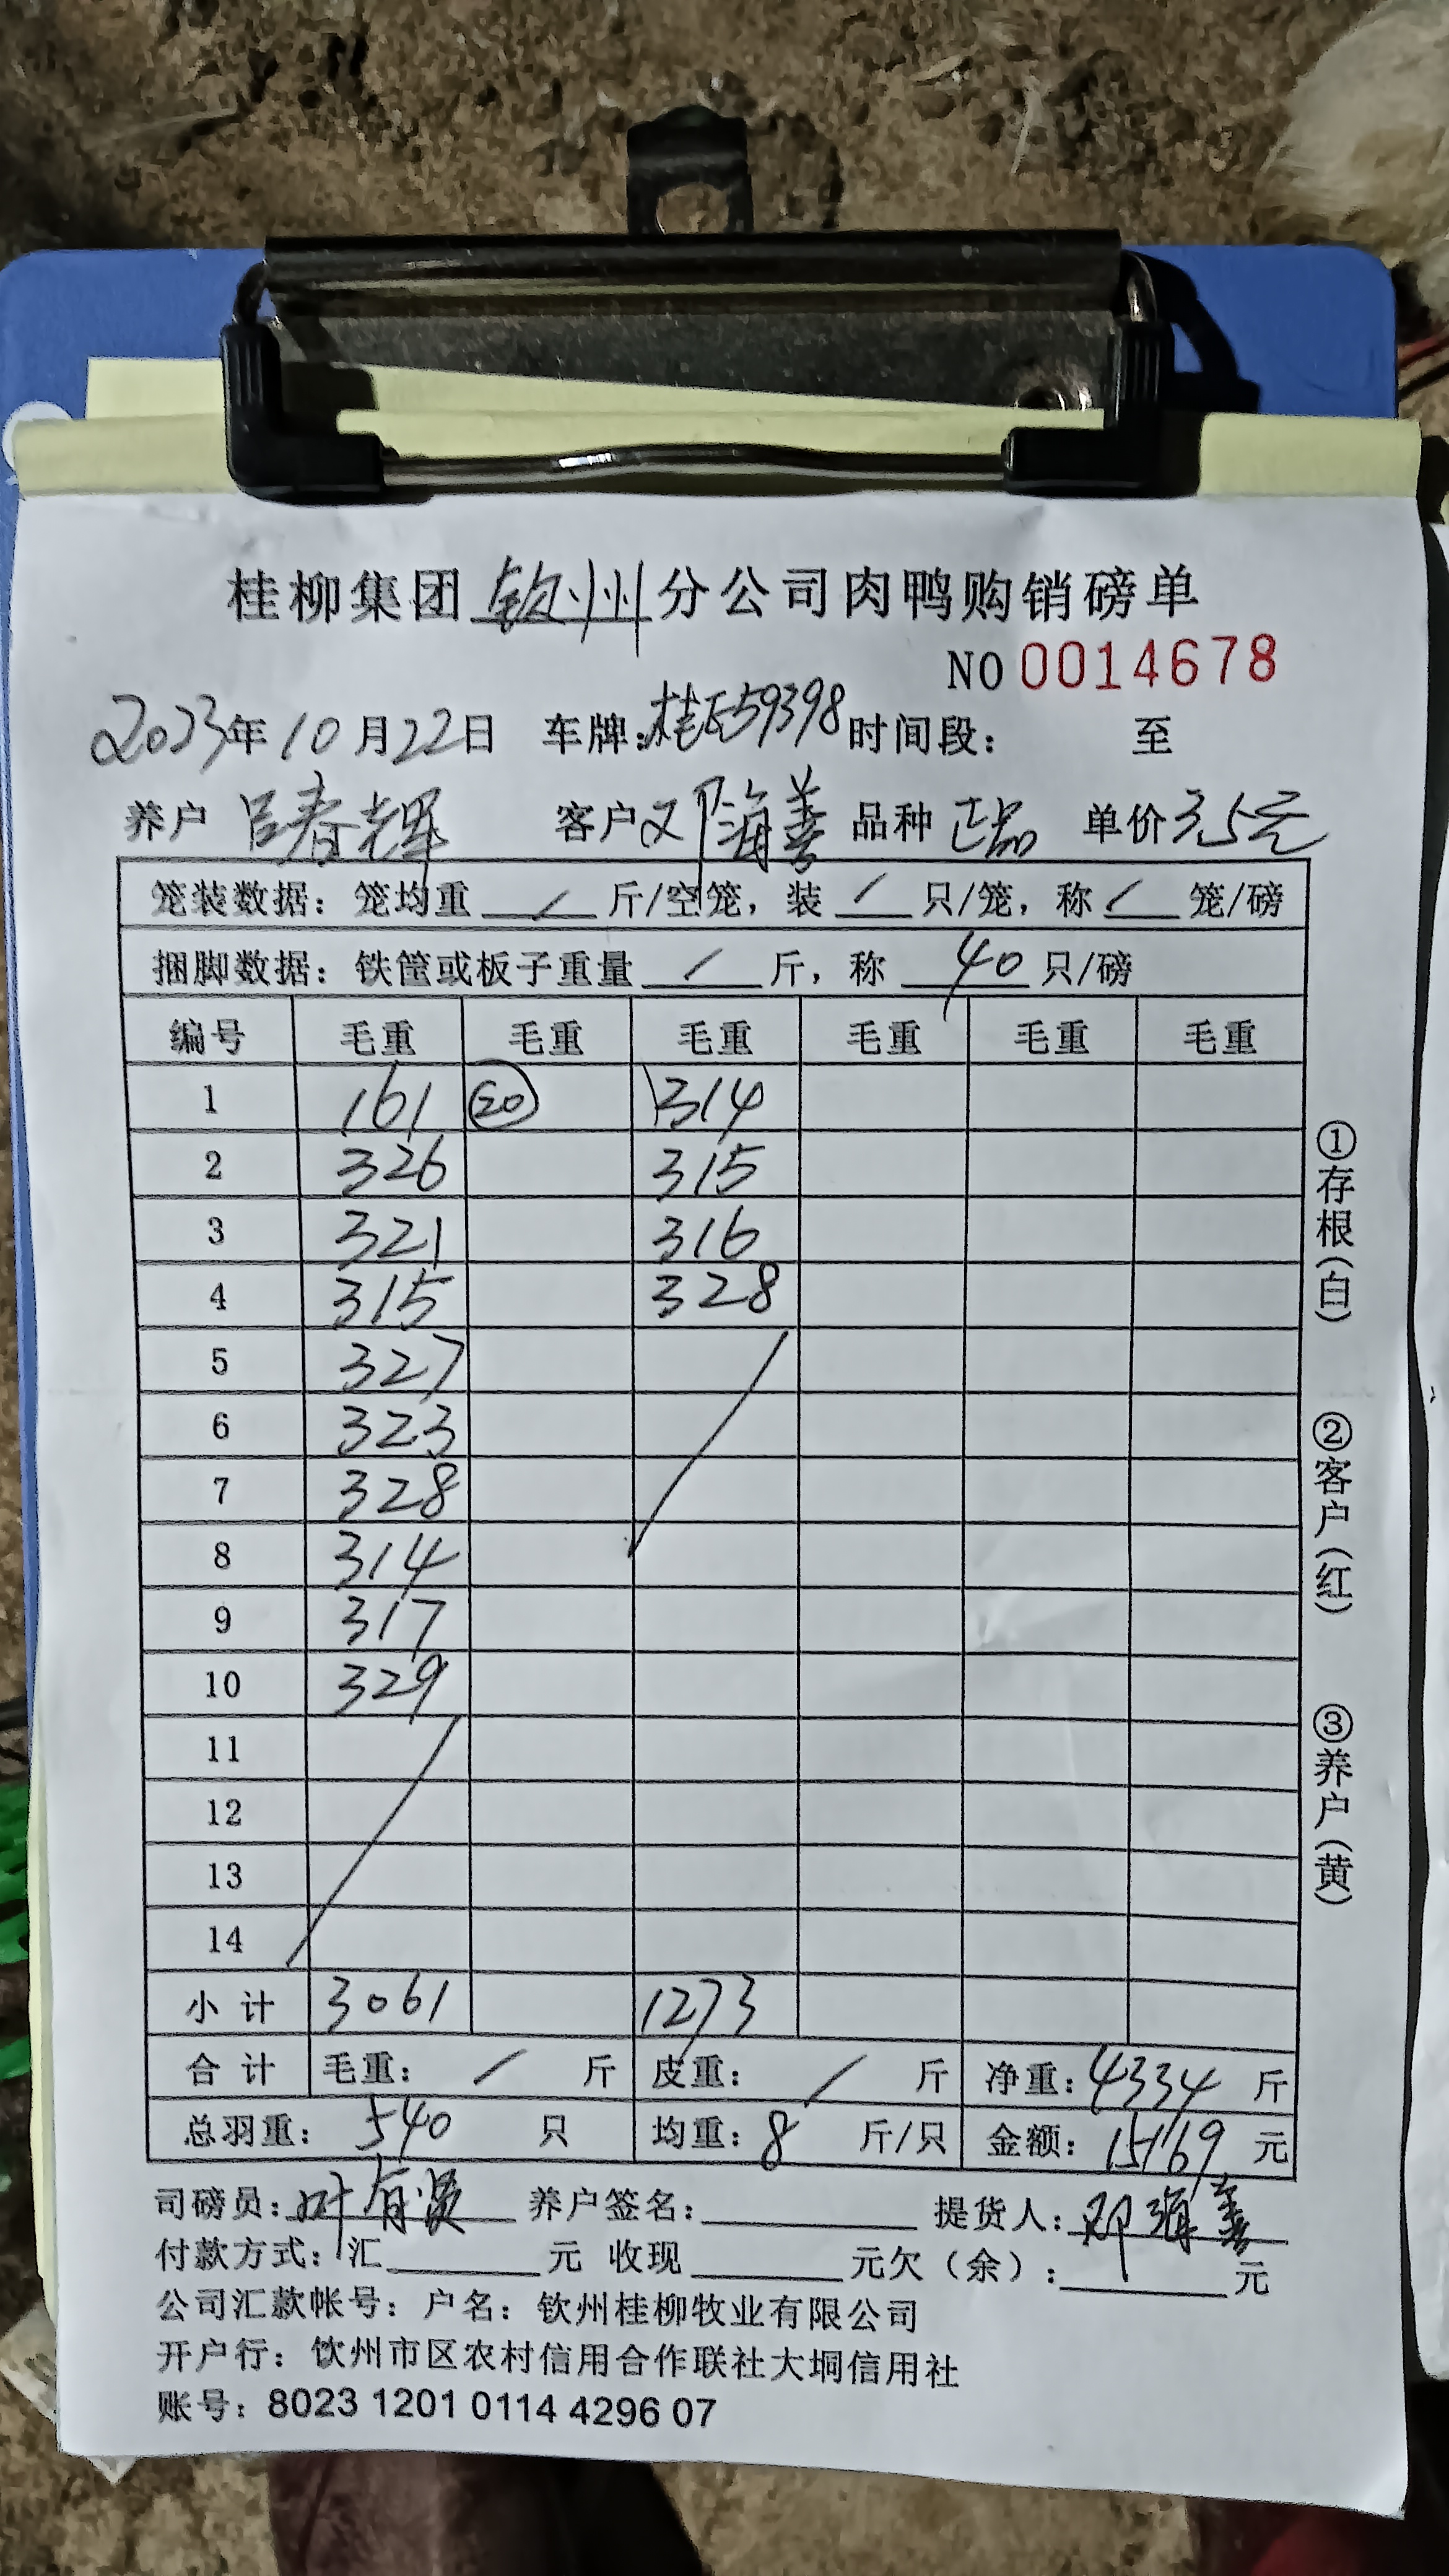 桂柳集团钦州分公司肉鸭购销磅单
NO 0014678
2023年10月22日 车牌:桂E59398时间段: 至
养户 吕春辉 客户 邓海善 品种 正品 单价 3.5元
笼装数据: 笼均重 / 斤/空笼, 装 / 只/笼, 称 / 笼/磅
捆脚数据: 铁筐或板子重量 / 斤, 称 40 只/磅
编号 毛重 毛重 毛重 毛重 毛重 毛重
1 161 20 314
2 326 315
3 321 316
4 315 328
5 327
6 323
7 328
8 314
9 317
10 329
11
12
13
14
小计 3061 1273
合计 毛重: / 斤 皮重: / 斤 净重: 4334 斤
总羽重: 540 只 均重: 8 斤/只 金额: 15169 元
司磅员: 叶有 养户签名: 提货人: 邓海善
付款方式: 汇 元 收现 元欠(余): 元
公司汇款帐号: 户名: 钦州桂柳牧业有限公司
开户行: 钦州市区农村信用合作联社大垌信用社
账号: 8023 1201 0114 4296 07
①存根(白) ②客户(红) ③养户(黄)